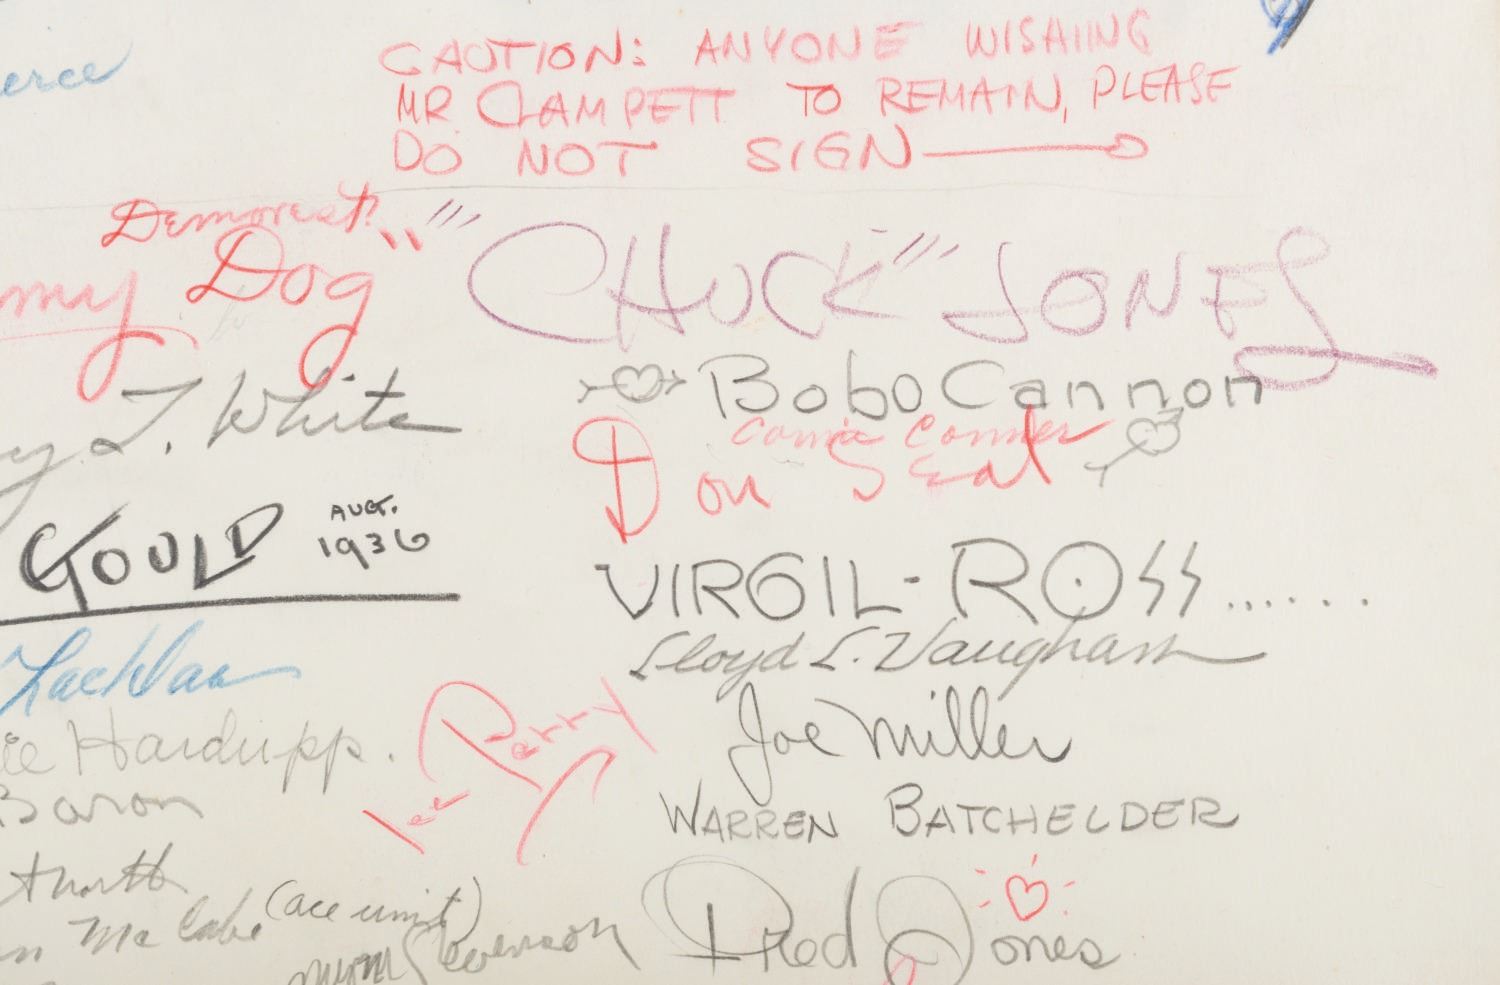 erce
CAUTION: ANYONE WISHING
MR CLAMPETT TO REMAIN, PLEASE
DO NOT SIGN
Demorest?
my Dog"
"CHUCK" JONES
Bobo Cannon
y L. White
Comic Corner
Don Seal
GOULD AUG.
1936
VIRGIL-ROSS......
Lloyd L. Vaughan
Lachlan
Joe Miller
ie Hardupp.
Perry
Baron
WARREN BATCHELDER
Mc Cabe (ace unit)
Fred Jones